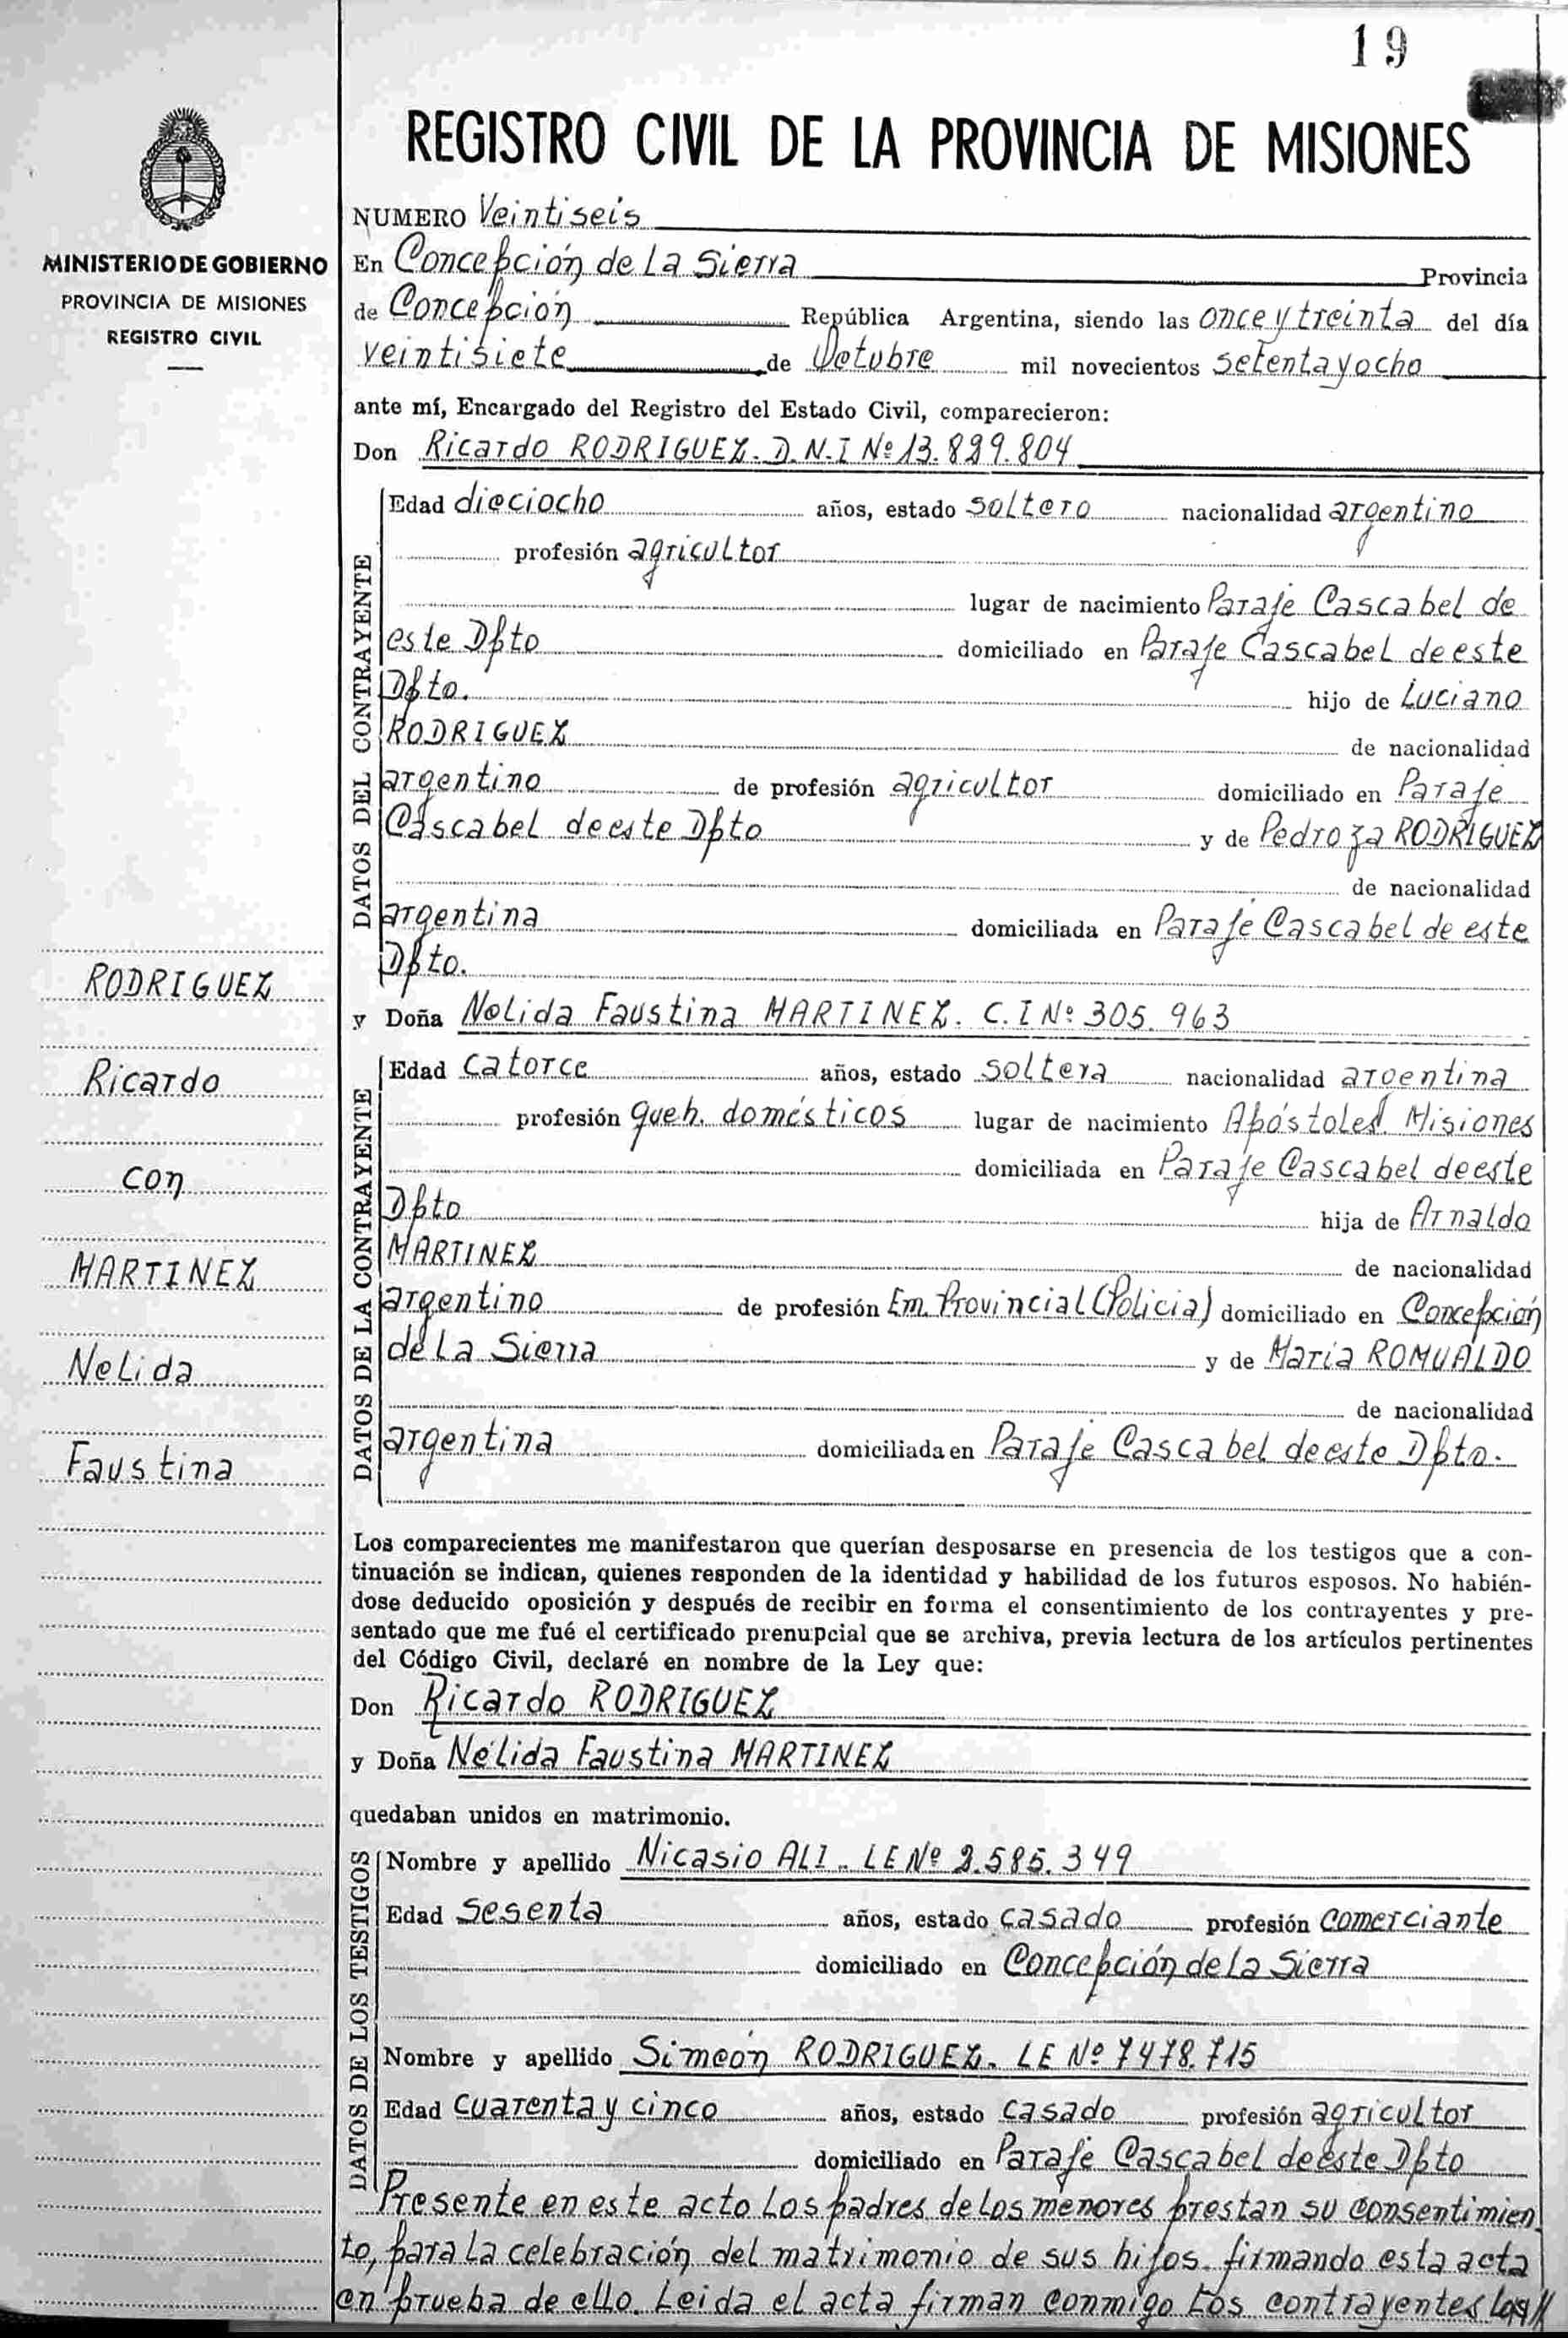 19
REGISTRO CIVIL DE LA PROVINCIA DE MISIONES
MINISTERIO DE GOBIERNO
PROVINCIA DE MISIONES
REGISTRO CIVIL
RODRIGUEZ
Ricardo
con
MARTINEZ
Nelida
Faustina
NUMERO Veintiseis
En Concepción de La Sierra Provincia
de Concepción República Argentina, siendo las once y treinta del día
veintisiete de Octubre mil novecientos setenta y ocho
ante mí, Encargado del Registro del Estado Civil, comparecieron:
Don Ricardo RODRIGUEZ. D.N.I Nº 13.829.804
DATOS DEL CONTRAYENTE
Edad dieciocho años, estado soltero nacionalidad argentino
profesión agricultor
lugar de nacimiento Paraje Cascabel de
este Dpto domiciliado en Paraje Cascabel de este
Dpto. hijo de Luciano
RODRIGUEZ de nacionalidad
argentino de profesión agricultor domiciliado en Paraje
Cascabel de este Dpto y de Pedroza RODRIGUEZ
de nacionalidad
argentina domiciliada en Paraje Cascabel de este
Dpto.
y Doña Nelida Faustina MARTINEZ. C.I Nº 305.963
DATOS DE LA CONTRAYENTE
Edad catorce años, estado soltera nacionalidad argentina
profesión queh. domésticos lugar de nacimiento Apóstoles Misiones
domiciliada en Paraje Cascabel de este
Dpto hija de Arnaldo
MARTINEZ de nacionalidad
argentino de profesión Em. Provincial (Policia) domiciliado en Concepción
de La Sierra y de Maria ROMUALDO
de nacionalidad
argentina domiciliada en Paraje Cascabel de este Dpto.
Los comparecientes me manifestaron que querían desposarse en presencia de los testigos que a con-
tinuación se indican, quienes responden de la identidad y habilidad de los futuros esposos. No habién-
dose deducido oposición y después de recibir en forma el consentimiento de los contrayentes y pre-
sentado que me fué el certificado prenupcial que se archiva, previa lectura de los artículos pertinentes
del Código Civil, declaré en nombre de la Ley que:
Don Ricardo RODRIGUEZ
y Doña Nélida Faustina MARTINEZ
quedaban unidos en matrimonio.
DATOS DE LOS TESTIGOS
Nombre y apellido Nicasio ALI. LE Nº 2.585.349
Edad Sesenta años, estado casado profesión comerciante
domiciliado en Concepción de la Sierra
Nombre y apellido Simeón RODRIGUEZ. LE Nº 7478.715
Edad cuarenta y cinco años, estado casado profesión agricultor
domiciliado en Paraje Cascabel de este Dpto
Presente en este acto Los padres de Los menores prestan su consentimien
to, para La celebración del matrimonio de sus hijos. firmando esta acta
en prueba de ello. Leida el acta firman conmigo Los contrayentes Los//